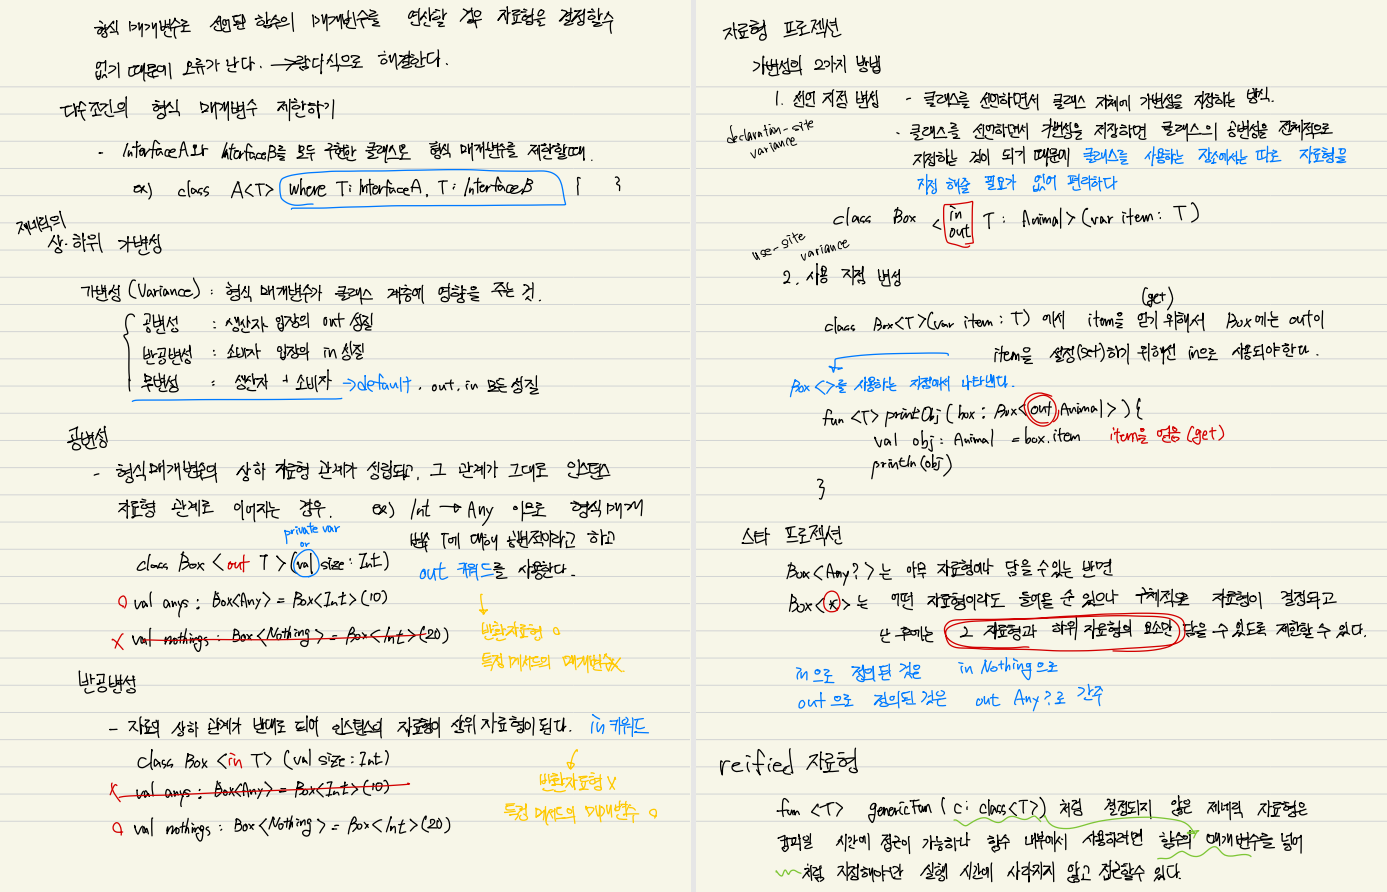 형식 매개변수로 선언된 함수의 매개변수를 연산할 경우 자료형을 결정할수
없기 때문에 오류가 난다. →람다식으로 해결한다.
다수조건의 형식 매개변수 제한하기
- InterfaceA와 InterfaceB를 모두 구현한 클래스로 형식 매개변수를 제한할때.
ex) class A<T> where T: InterfaceA, T: InterfaceB { }
제네릭의
상·하위 가변성
가변성 (Variance) : 형식 매개변수가 클래스 계층에 영향을 주는 것.
공변성 : 생산자 입장의 out 성질
반공변성 : 소비자 입장의 in 성질
무변성 : 생산자 + 소비자 →default, out, in 모든 성질
공변성
- 형식매개변수의 상하 자료형 관계가 성립되고, 그 관계가 그대로 인스턴스
자료형 관계로 이어지는 경우. ex) Int → Any 이므로 형식 매개
변수 T에 대해 공변적이라고 하고
out 키워드를 사용한다.
private var
or
class Box <out T> (val size: Int)
O val anys : Box<Any> = Box<Int>(10)
X val nothings : Box<Nothing> = Box<Int>(20)
반환자료형 O
특정 메서드의 매개변수X
반공변성
- 자료의 상하 관계가 반대로 되어 인스턴스의 자료형이 상위 자료형이 된다. in 키워드
class Box <in T> (val size: Int)
X val anys : Box<Any> = Box<Int>(10)
O val nothings : Box<Nothing> = Box<Int>(20)
반환자료형 X
특정 메서드의 매개변수 O
자료형 프로젝션
가변성의 2가지 방법
1. 선언 지점 변성 - 클래스를 선언하면서 클래스 자체에 가변성을 지정하는 방식.
declaration-site
variance
- 클래스를 선언하면서 가변성을 지정하면 클래스의 공변성을 전체적으로
지정하는 것이 되기 때문에 클래스를 사용하는 장소에서는 따로 자료형을
지정 해줄 필요가 없어 편리하다
class Box <in T : Animal> (var item: T)
out
use-site
variance
2. 사용 지점 변성
(get)
class Box<T>(var item : T) 에서 item을 얻기 위해서 Box에는 out이
item을 설정(set)하기 위해선 in으로 사용되야한다.
Box<>를 사용하는 지점에서 나타낸다.
fun <T> printObj (box : Box<out Animal>) {
val obj : Animal = box.item item을 얻음 (get)
println(obj)
}
스타 프로젝션
Box<Any?>는 아무 자료형이나 담을 수 있는 반면
Box<*>는 어떤 자료형이라도 들어올 순 있으나 구체적으로 자료형이 결정되고
난 후에는 그 자료형과 하위 자료형의 요소만 담을 수 있도록 제한할 수 있다.
in으로 정의된 것은 in Nothing으로
out으로 정의된 것은 out Any?로 간주
reified 자료형
fun <T> genericFun (c: class<T>) 처럼 결정되지 않은 제네릭 자료형은
컴파일 시간에 접근이 가능하나 함수 내부에서 사용하려면 함수의 매개변수를 넣어
처럼 지정해야만 실행 시간에 사라지지 않고 접근할수 있다.